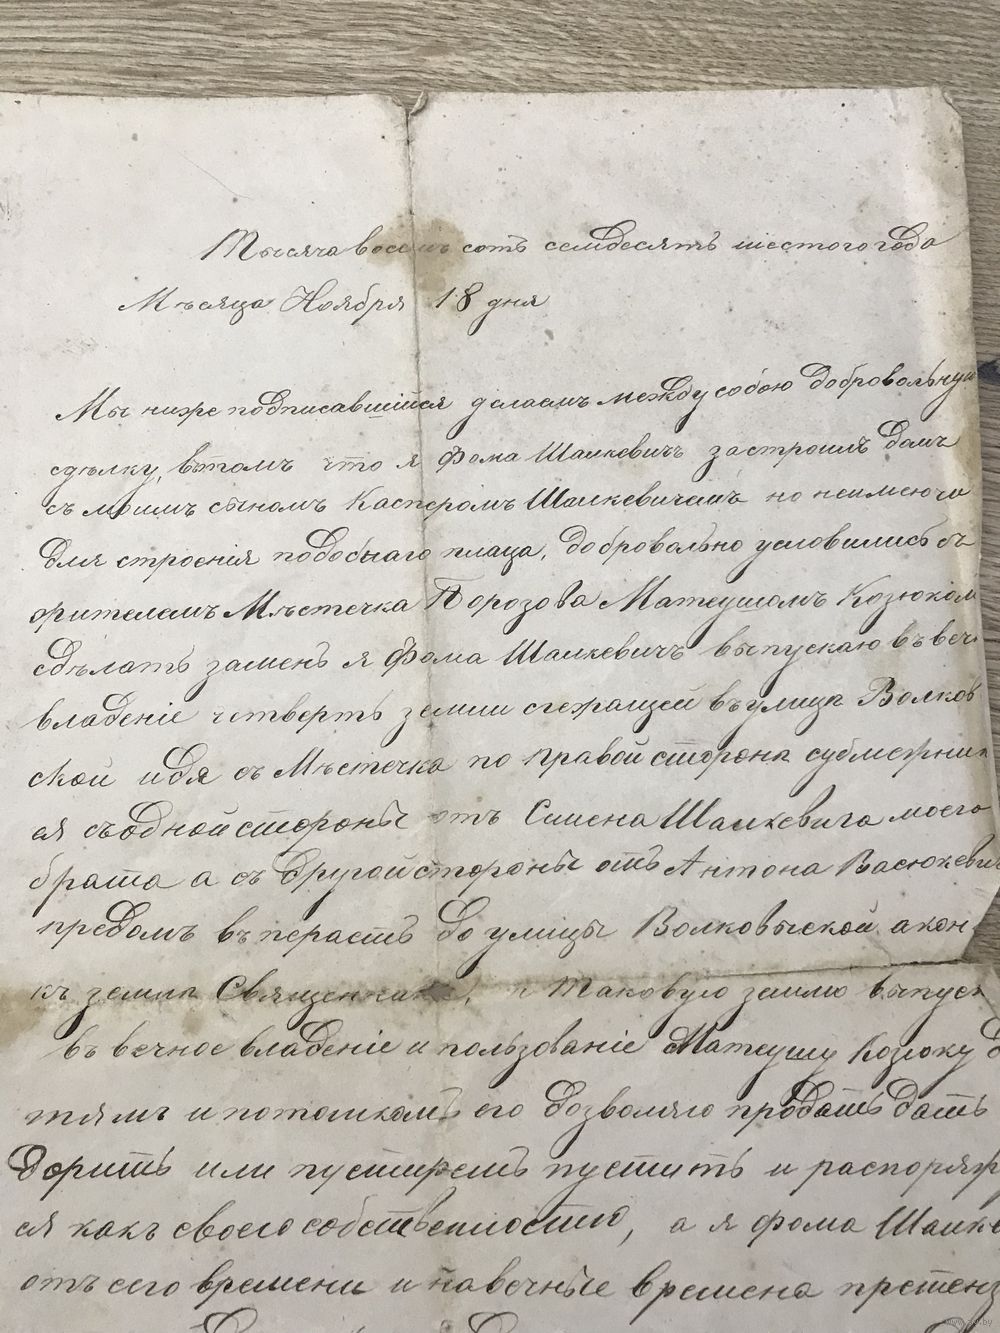 Тысяча восемь сотъ семдесятъ шестого года
Мѣсяца Ноября 18 дня
Мы ниже подписавшійся делаемъ между собою добровольную
сдѣлку, въ томъ что я Фома Шамкевичъ застроилъ домъ
съ моимъ сыномъ Касперомъ Шамкевичемъ но неимеючи
для строенія подобнаго плаца, добровольно условились съ
жителемъ Мѣстечка Порозова Матеушомъ Козюком
сдѣлать заменъ я Фома Шамкевичъ выпускаю въ веч
владеніе четверть земли лежащей въ улицѣ Волков
ской идя съ Мѣстечка по правой сторонѣ субмежник
ся съ одной стороны отъ Симена Шамкевича моего
брата а съ другой стороны отъ Антона Васюкеви
предомъ въ перастъ до улицы Волковыской, а кон
къ земли Священника, и таковую землю выпуск
въ вечное владеніе и пользованіе Матеушу Козюку
тямъ и потомкомъ его дозволяю продать дать
дорить или пустиремъ пустить и распоряж
ся какъ своею собственностію, а я Фома Шамке
отъ сего времени и на вечные времена претенз